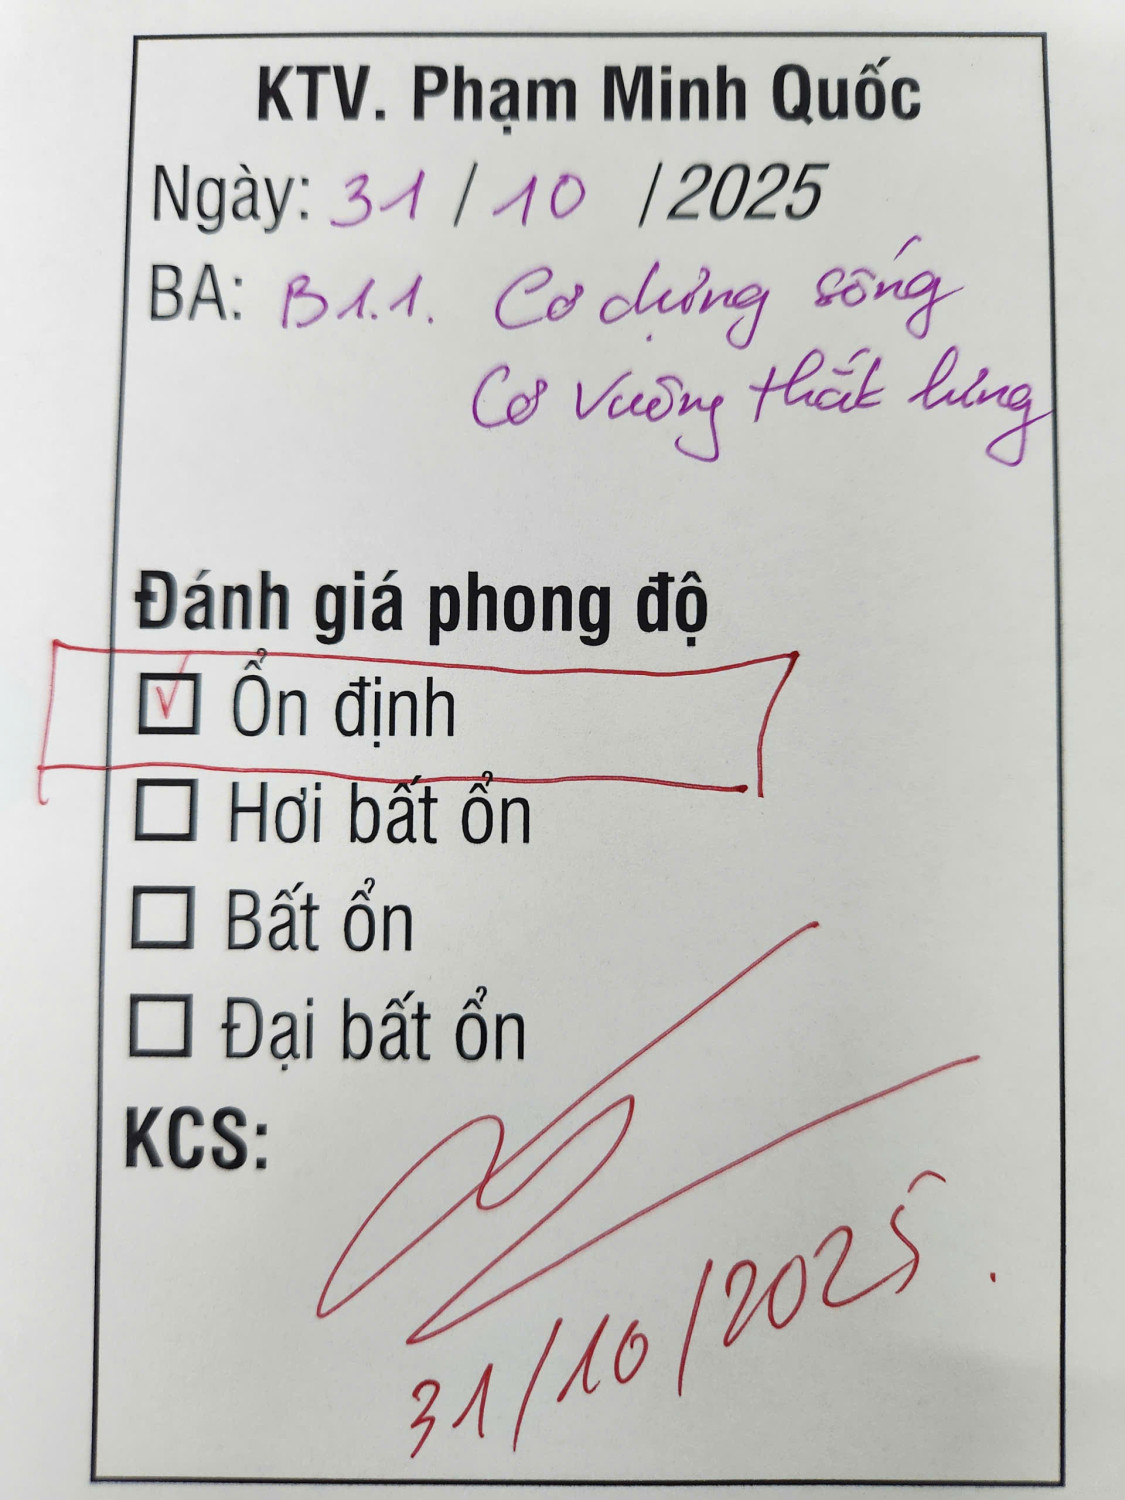 KTV. Phạm Minh Quốc
Ngày: 31 / 10 /2025
BA: B1.1. Cơ dựng sống
Cơ vuông thắt lưng
Đánh giá phong độ
Ổn định
Hơi bất ổn
Bất ổn
Đại bất ổn
KCS:
31/10/2025.